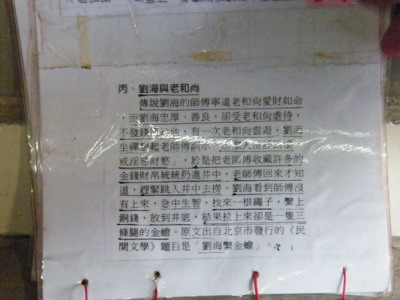 丙、劉海與老和尚
傳說劉海的師傅寧遠老和尚愛財如命
，而劉海忠厚、善良，卻受老和尚虐待，
不發錢給他，有一次老和尚雲遊，劉海
坐禪想起老師傅訓示
戒淫慾財慾」，於是把老師傅收藏許多的
金錢財帛統統扔進井中，老師傅回來才知
道，趕緊跳入井中去撈。劉海看到師傅沒
有上來，急中生智，找來一根繩子，繫上
銅錢，放到井底，結果拉上來卻是一隻三
條腿的金蟾。原文出自北京市發行的〈民
間文學〉題目是「劉海繫金蟾」。